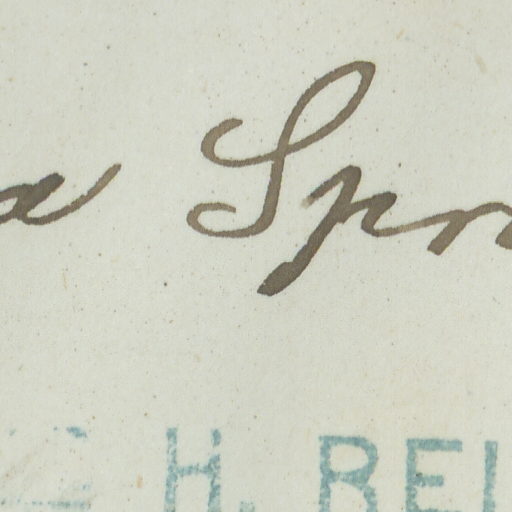 a Spr
H. BEI